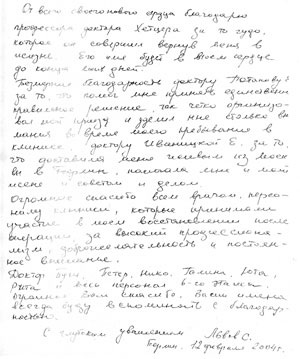 От всего своего нового сердца благодарю
профессора доктора Хетцера за то чудо,
которое он совершил вернув меня в
жизнь. Его имя будет в моем сердце
до конца моих дней.
благодарность доктору Потапову
за то, что помог мне принять единственно
правильное решение, так четко организо-
вал мой приезд и уделил мне столько вни-
мания во время моего пребывания в
клинике, доктору Иваницкой Е. за то,
что доставила меня живым из Моск-
вы в Берлин, помогала мне и моей
жене и советом и делом.
Огромное спасибо всем врачам, персо-
налу клиники, которые принимали
участие в моем восстановлении после
операции за высокий профессиона-
лизм, доброжелательность и постоян-
ное внимание.
Доктор Петер, Нико, Галина, Юта,
Рита и весь персонал 6-го этажа.
Огромное Вам спасибо. Ваши имена
всегда буду вспоминать с благодар-
ностью.
С глубоким уважением Львов С.
Берлин, 12 февраля 2004г.